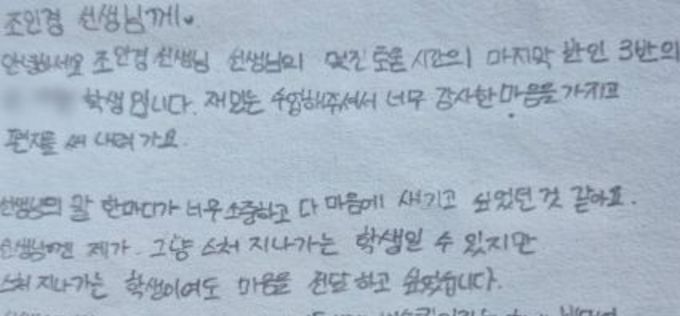 조인경 선생님께♥
안녕하세요 조인경 선생님 선생님의 멋진 토론 시간의 마지막 반인 3반의
학생입니다. 재밌는 수업해주셔서 너무 감사한 마음을 가지고
편지를 써 내려 가요.
선생님의 말 한마디가 너무 소중하고 다 마음에 새기고 싶었던 것 같아요.
선생님껜 제가 그냥 스쳐 지나가는 학생일 수 있지만
스쳐 지나가는 학생이여도 마음을 전달 하고 싶었습니다.